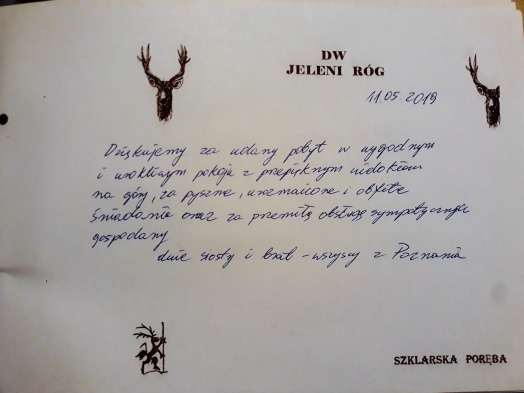 DW
JELENI RÓG
11.05.2019
Dziękujemy za udany pobyt w wygodnym
i urokliwym pokoju z przepięknym widokiem
na góry, za pyszne, urozmaicone i obfite
śniadania oraz za przemiłą obsługę sympatycznych
gospodarzy
dwie siostry i brat - wszyscy z Poznania
SZKLARSKA PORĘBA